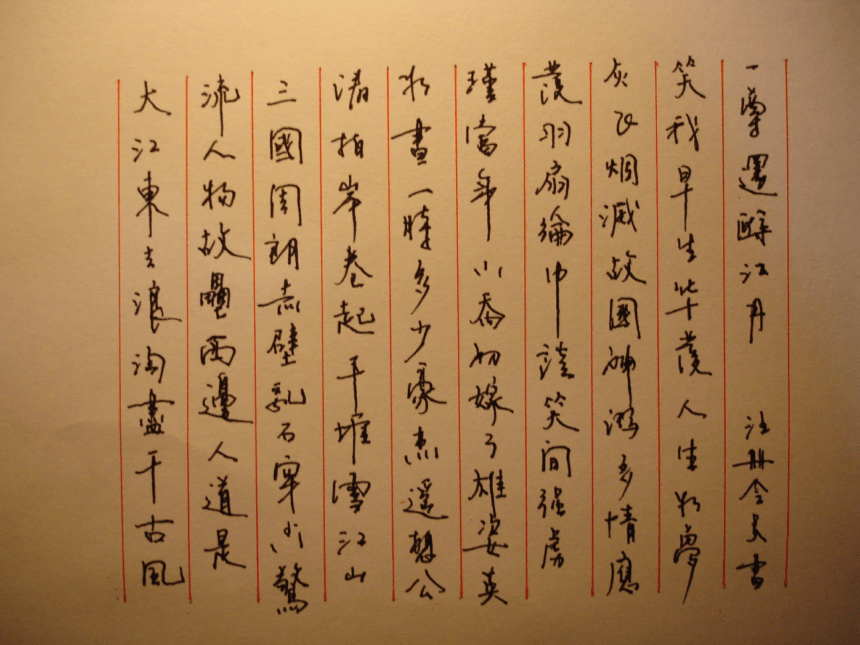 大江東去浪淘盡千古風
流人物故壘西邊人道是
三國周朗赤壁乱石穿空驚
濤拍岸卷起千堆雪江山
如畫一時多少豪杰遥想公
瑾當年小喬初嫁了雄姿英
發羽扇綸巾談笑间强虜
灰飞烟滅故國神游多情應
笑我早生华發人生如夢
一尊還酹江月 注册会员書